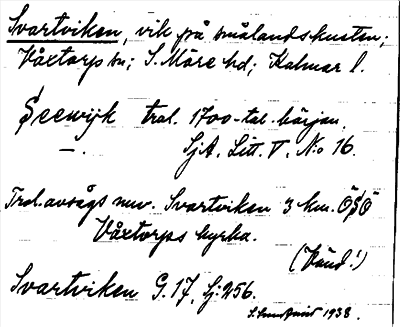 Svartviken, vik på smålandskusten;
Växtorps sn; S. Möre hd; Kalmar l.
Seewijk trol. 1700-tal. början.
—. SjA. Litt. V. No 16.
Trol. avságs nuv. Svartviken 3 km. ÖSÖ
Växtorps kyrka.
(Vänd!)
Svartviken G. 17, Lj: 256.
1938.